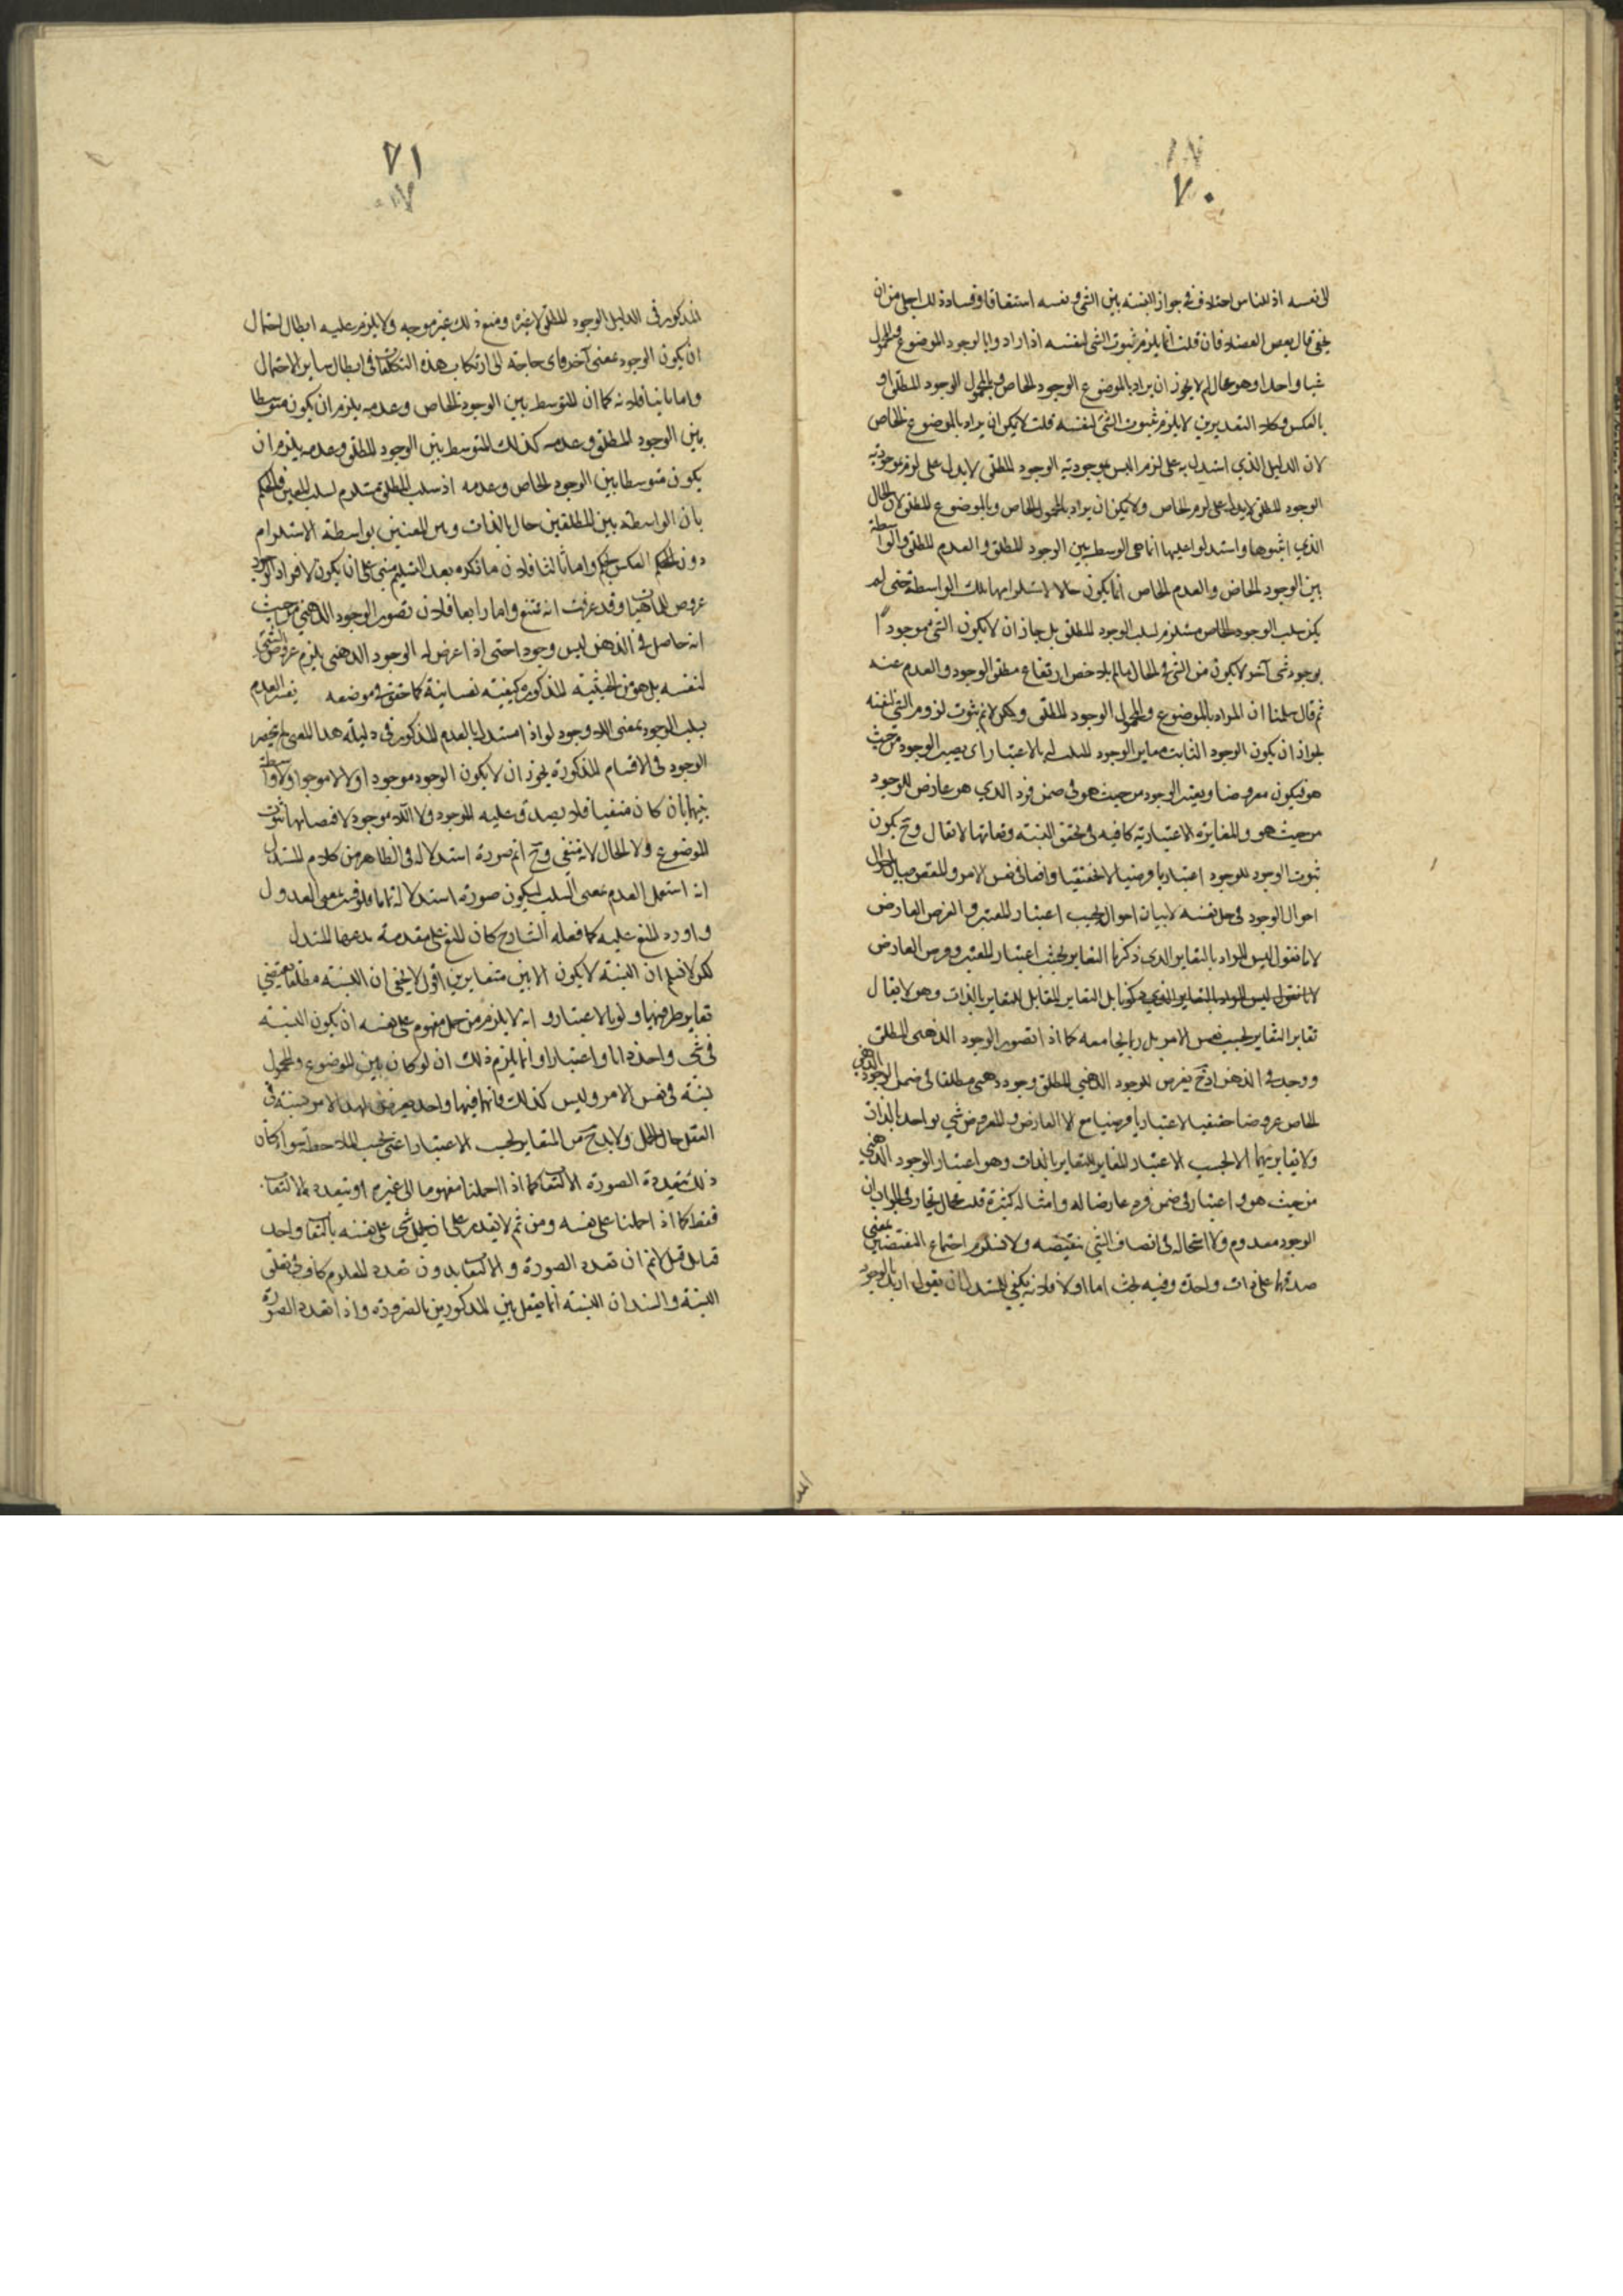 ٧٠
الى نفسه اذ للناس اختلاف فى جواز النسبة بين الشئ ونفسه استقاقا وفساد ذلك اجلى من ان
يخفى قال بعض الفضلا فان قلت انما يلزم ثبوت الشئ لنفسه اذا ارادوا بالوجود الموضوع والمحمول
شيا واحدا وهو محال لم لا يجوز ان يراد بالموضوع الوجود الخاص وبالمحمول الوجود المطلق او
بالعكس وكلا التقديرين لا يلزم ثبوت الشئ لنفسه قلت لا يمكن ان يراد بالموضوع الخاص
لان الدليل الذي استدل به على لزم ليس موجودية الوجود المطلق لا يدل على لزم موجودية
الوجود المطلق لا يدل على لزم الخاص ولا يمكن ان يراد بالمحمول الخاص وبالموضوع المطلق لان الحال
الذي اثبتوها واستدلوا عليها انما هى الوسط بين الوجود المطلق والعدم المطلق والواسطة
بين الوجود الخاص والعدم الخاص انما يكون حالا لاستلزامها تلك الواسطة حتى لم
يكن سلب الوجود الخاص مستلزم لسلب الوجود المطلق بل جاز ان لا يكون الشئ موجودا
بوجود شئ آخر لا يكون من الشئ فى الحال ما لم يلاخص ارتفاع مطلق الوجود والعدم عنه
ثم قال سلمنا ان المراد بالموضوع والمحمول الوجود المطلق ولكن لا نم ثبوت لزوم الشئ لنفسه
لجواز ان يكون الوجود الثابت مغاير الوجود المسلب له بالاعتبار اى يعتبر الوجود من حيث
هو فيكون معروضا ويعتبر الوجود من حيث هو فى ضمن فرد الذي هو عارض للوجود
من حيث هو والمغايرة الاعتبارية كافيه فى تحقق النسبة وتعانها لا تقال وح يكون
ثبوت الوجود للوجود اعتباريا فرضيا لا حقيقيا واقعا فى نفس الامر والمقصود بيان احوال
احوال الوجود فى حد نفسه لا بيان احوال بحسب اعتبار المعتبر والفرض الفارض
لانا نقول ليس المراد بالتغاير الذي ذكرنا التغاير بحسب اعتبار المعتبر وفرض الفارض
لانا نقول ليس المراد بالتغاير الذي ذكرنا بل التغاير المقابل للتغاير بالذات وهو لا يقال
تغاير التغاير بحسب نفس الامر بل ربما يجامعه كما اذا تصور الوجود الذهنى المطلق
ووجد فى الذهن اذ ح يعرض للوجود الذهنى المطلق وجود ذهنى مطلقا فى ضمن الوجود الذهني
الخاص عروضا حقيقيا لا اعتباريا فرضيا مع ان العارض والمعروض شئ واحد بالذات
ولا تغاير بينهما الا بحسب الاعتبار المغاير للتغاير بالذات وهو اعتبار الوجود الذهني
من حيث هو واعتباره فى ضمن فرد عارضا له وامثاله كثيرة قلت محال يختار فى الجواب ان
الوجود معدوم ولا استحاله فى اتصاف الشئ بنقيضه ولا نستلزم اجتماع النقيضين بمعنى
صدقهما على ذات واحدة وفيه بحث اما اولا فلانه يكفى للمستدل ان يقول اريد بالوجود
٧١
المذكور فى الدليل الوجود المطلق لا غيره ومنع ذلك غير موجه ولا يلزم عليه ابطال احتمال
ان يكون الوجود بمعنى آخر فاى حاجة الى ارتكاب هذه التكلفات فى ابطال ساير الاحتمال
واما ثانيا فلانه كما ان المتوسط بين الوجود الخاص وعدمه يلزم ان يكون متوسطا
بين الوجود المطلق وعدمه كذلك المتوسط بين الوجود المطلق وعدمه يلزم ان
يكون متوسطا بين الوجود الخاص وعدمه اذ سلب المطلق مستلزم لسلب المعين فالحكم
بان الواسطه بين المطلقين حال بالذات وبين المعنيين بواسطة الاستلزام
دون الحكم العكس تحكم واما ثالثا فلان ما ذكره بعد التسليم مبنى على ان يكون لافراد الوجود
عروض للماهيات وقد عرفت انه ممتنع واما رابعا فلان تصور الوجود الذهنى من حيث
انه حاصل فى الذهن ليس وجودا حتى اذا عرض له الوجود الذهنى يلزم عروض الشئ
لنفسه بل هو من الحيثية المذكورة كيفية نفسانية كما حقق فى موضعه يفسر العدم
بسلب الوجود بمعنى اللاوجود لو اذ استدل بالعدم المذكور فى دليله هذا المعنى لم ينحصر
الوجود فى الاقسام المذكورة يجوز ان لا يكون الوجود موجودا ولا لا موجودا ولا واسطة
بينهما بان كان منفيا فلا يصدق عليه الموجود ولا اللاموجود لاقتضائها ثبوت
الموضوع ولا الحال لانه منتفى وح انم صورة استدلاله فى الظاهر من كلام المستدل
انه استعمل العدم بمعنى السلب ليكون صورة استدلاله تاما فلو فسر بمعنى العدول
واورد المنع عليه كما فعله الشارح كان المنع على مقدمة يدعيها المستدل
لكن لا نسلم ان النسبة لا يكون الا بين متغايرين اقول لا يخفى ان النسبة مطلقا يقتضى
تغاير طرفيها ولو بالاعتبار وانه لا يلزم من حمل مفهوم على نفسه ان يكون النسبة
فى شئ واحد ذاتا واعتبارا وانما يلزم ذلك ان لو كان بين الموضوع والمحمول
نسبة فى نفس الامر وليس كذلك فانهما فيها واحد يعرض لهذا الامر نسبة فى
العقل حال الحمل ولا بد ح من التغاير بحسب الاعتبار اعنى بحسب الملاحظة سواء كان
ذلك بتعدد الصورة الالتفات كما اذا احملنا مفهوما الى غيره او بتعدد الالتفات
فقط كما اذا احملنا على نفسه ومن ثم لا يقدر على ان يحمل شئ على نفسه بالتفات واحد
قيل لا نم ان تعدد الصورة والالتفات بدون تعدد المعلوم كاف فى تعلق
النسبة والسند ان النسبة انما يتعقل بين المذكورين بالضرورة واذا تعدد الصورة